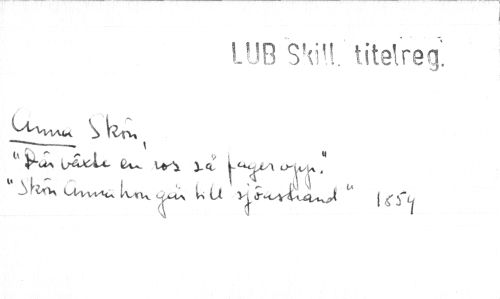 LUB Skill. titelreg.
Anna Skön,
"Där växte en ros så fager opp."
"Skön Anna hon går till sjöastrand" 1854